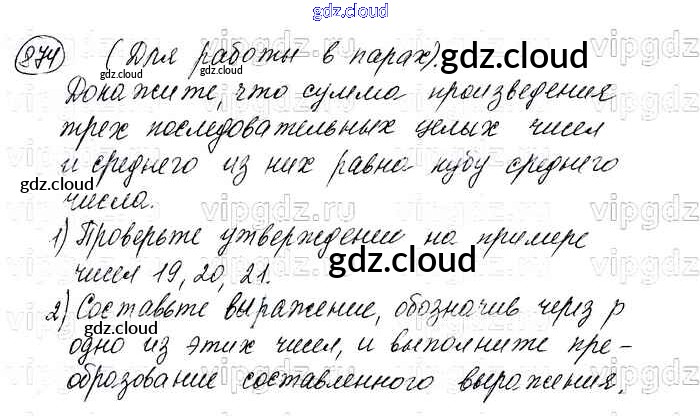 gdz.cloud
874 (Для работы в парах).
Докажите, что сумма произведения
трех последовательных целых чисел
и среднего из них равна кубу среднего
числа.
1) Проверьте утверждение на примере
чисел 19, 20, 21.
2) Составьте выражение, обозначив через p
одно из этих чисел, и выполните пре-
образование составленного выражения.
gdz.cloud
gdz.cloud
gdz.cloud
gdz.cloud
gdz.cloud
gdz.cloud
gdz.cloud
vipgdz.ru
vipgdz.ru
vipgdz.ru